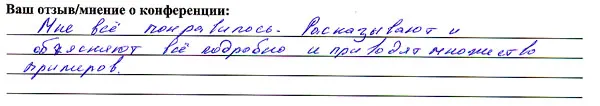 Ваш отзыв/мнение о конференции:
Мне всё понравилось. Рассказывают и
объясняют всё подробно и приводят множество
примеров.